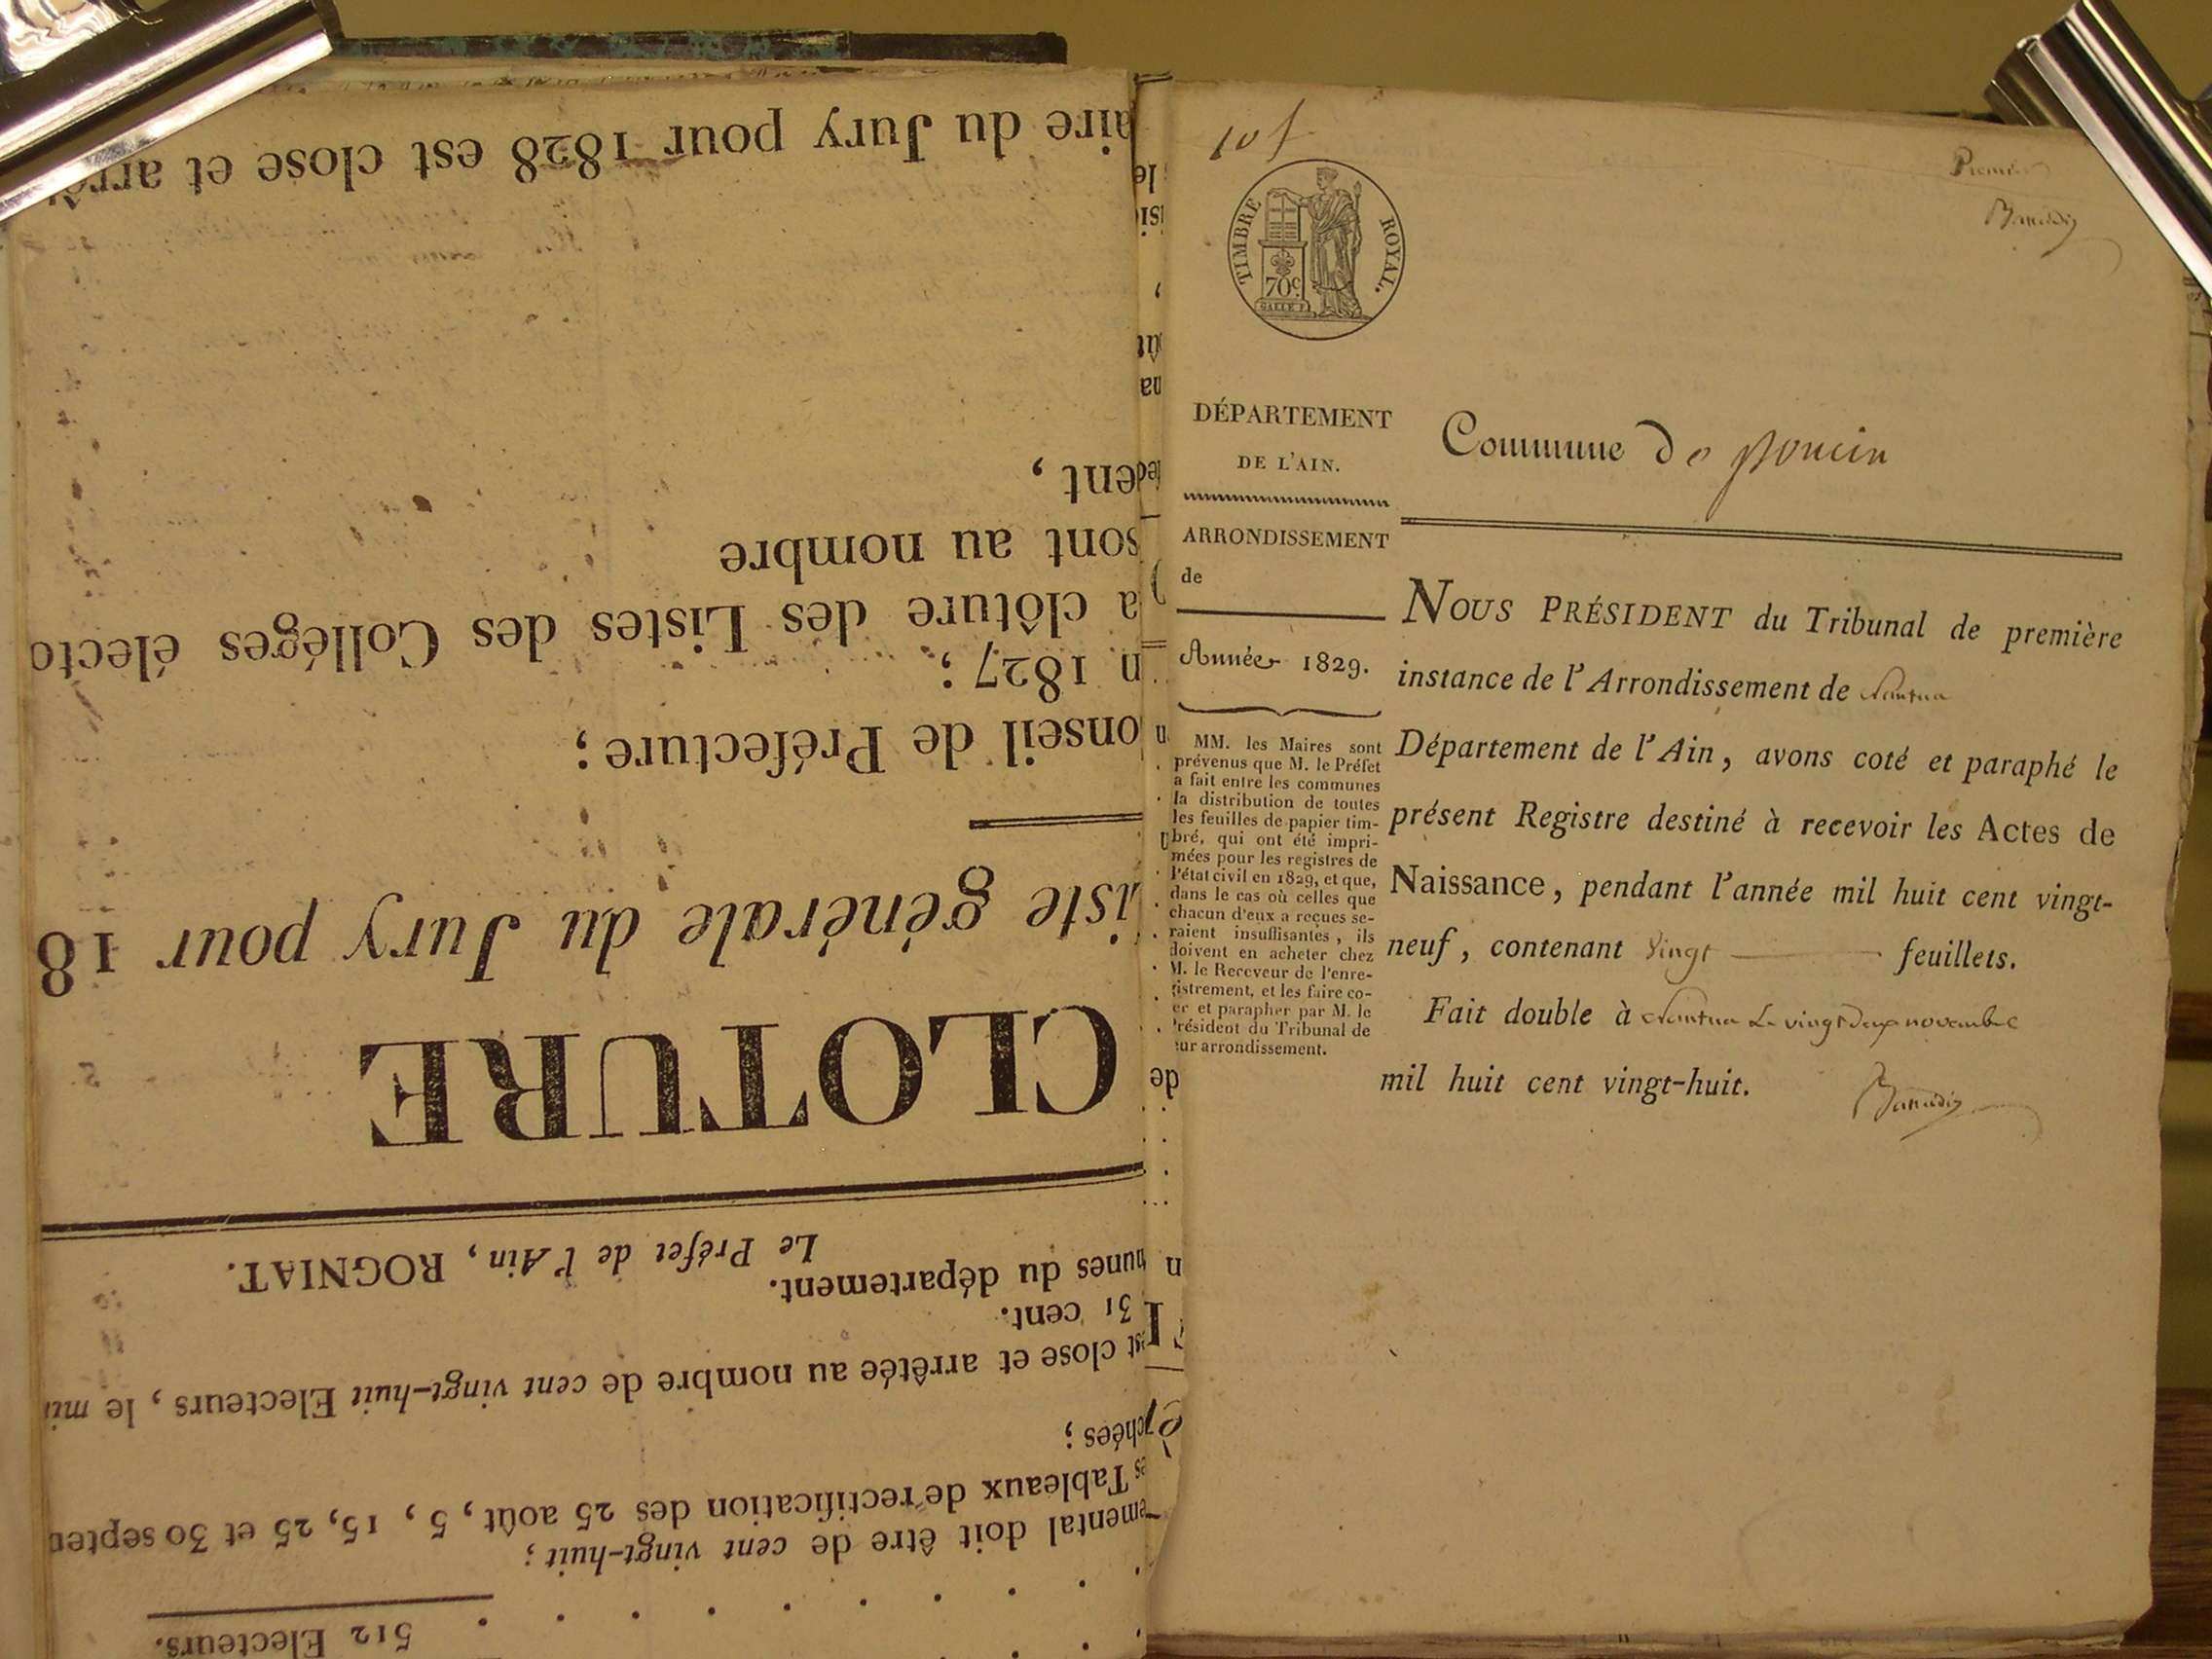 512 Electeurs.
mental doit être de cent vingt-huit ;
Tableaux de rectification des 25 août, 5, 15, 25 et 30 septem
chées ;
st close et arrêtée au nombre de cent vingt-huit Electeurs, le mi
31 cent.
unes du département.
Le Préfet de l'Ain, ROGNIAT.
CLOTURE
iste générale du Jury pour 18
onseil de Préfecture ;
n 1827 ;
a clôture des Listes des Colléges électo
sont au nombre
dent,
aire du Jury pour 1828 est close et arrê
10 f
Premier
TIMBRE ROYAL.
70 c.
DÉPARTEMENT
DE L'AIN.
Commune de poncin
ARRONDISSEMENT
de
Année 1829.
MM. les Maires sont
prévenus que M. le Préfet
a fait entre les communes
la distribution de toutes
les feuilles de papier tim-
bré, qui ont été impri-
mées pour les registres de
l'état civil en 1829, et que,
dans le cas où celles que
chacun d'eux a reçues se-
raient insuffisantes, ils
doivent en acheter chez
M. le Receveur de l'enre-
gistrement, et les faire co-
er et parapher par M. le
Président du Tribunal de
eur arrondissement.
NOUS PRÉSIDENT du Tribunal de première
instance de l'Arrondissement de Nantua
Département de l'Ain, avons coté et paraphé le
présent Registre destiné à recevoir les Actes de
Naissance, pendant l'année mil huit cent vingt-
neuf, contenant Vingt feuillets.
Fait double à Nantua Le vingt deux novembre
mil huit cent vingt-huit.